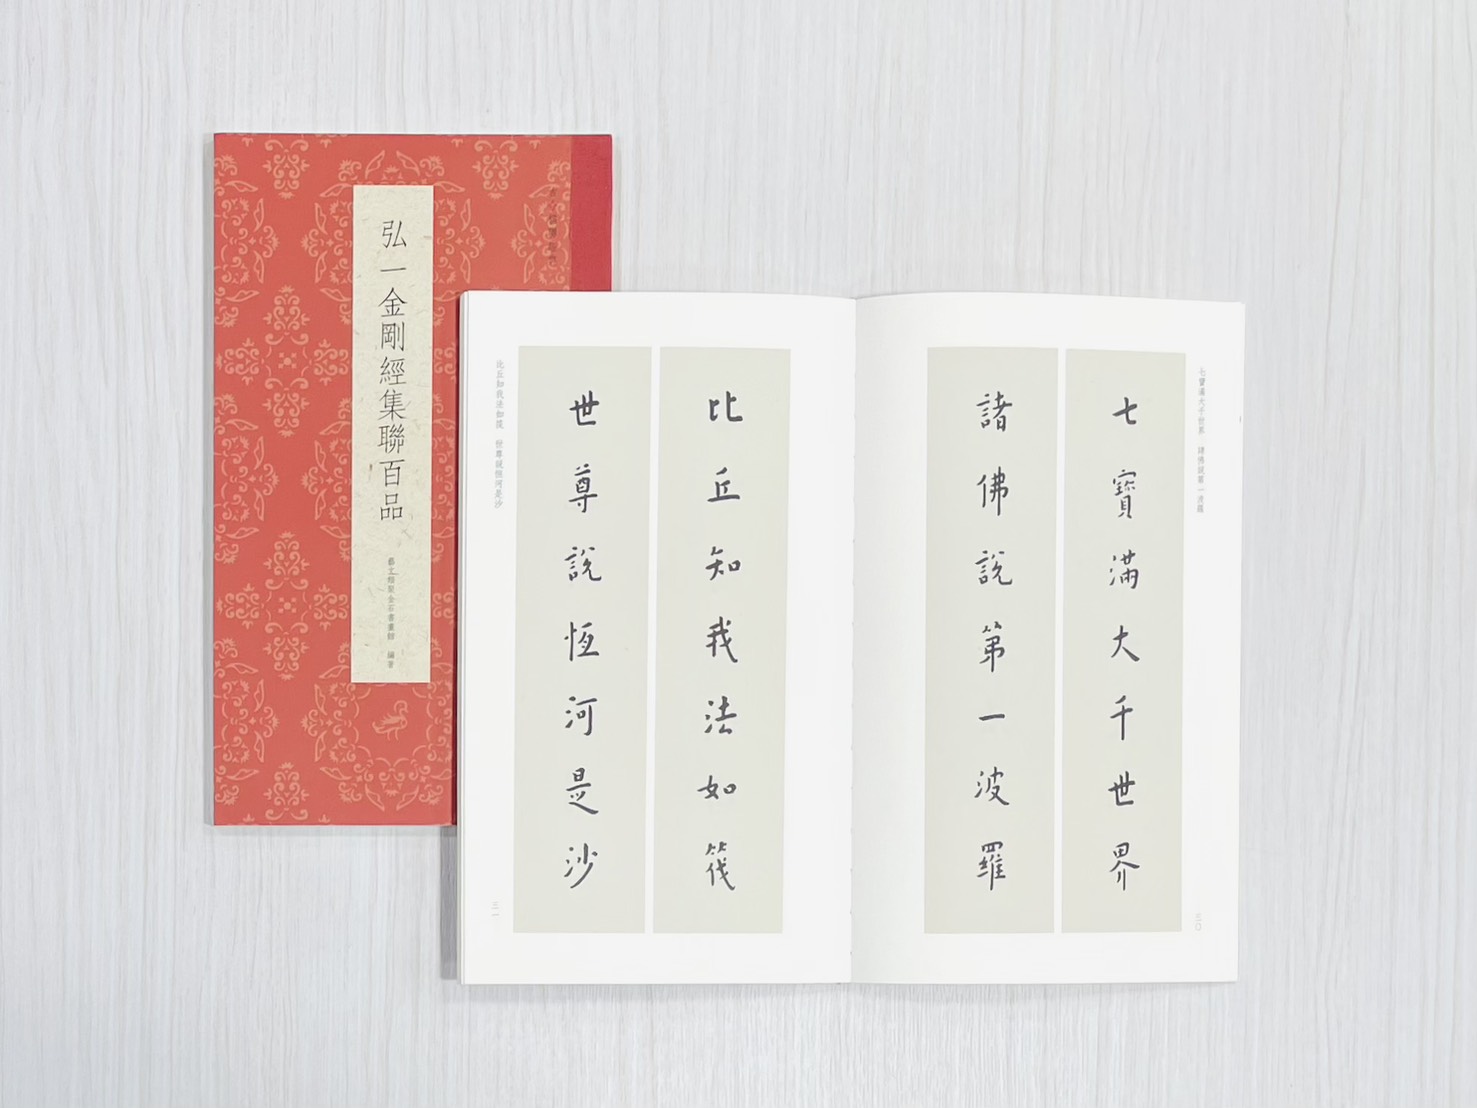 弘一金剛經集聯百品
藝文類聚金石書畫館 編著
七寶滿大千世界 諸佛說第一波羅
七寶滿大千世界
諸佛說第一波羅
三〇
比丘知我法如筏
世尊說恆河是沙
比丘知我法如筏 世尊說恆河是沙
三一